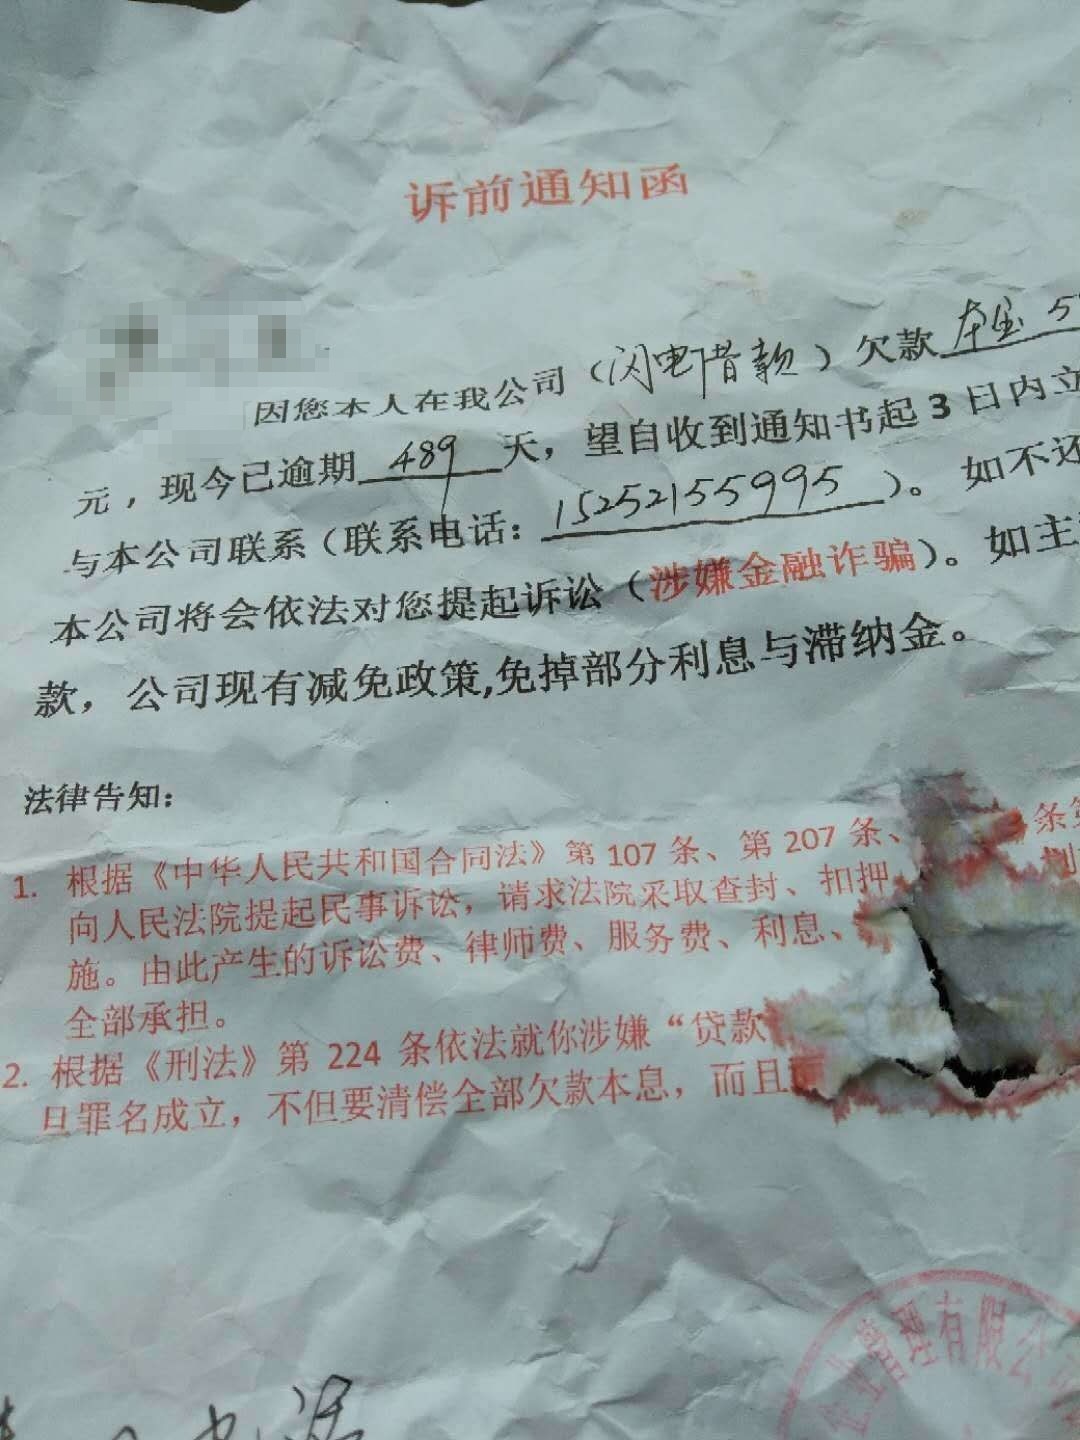 诉前通知函
因您本人在我公司（闪电借款）欠款本金5
元，现今已逾期 489 天，望自收到通知书起 3 日内立
与本公司联系（联系电话：15252155995）。如不还
本公司将会依法对您提起诉讼（涉嫌金融诈骗）。如主
款，公司现有减免政策,免掉部分利息与滞纳金。
法律告知：
1. 根据《中华人民共和国合同法》第 107 条、第 207 条、条第
向人民法院提起民事诉讼，请求法院采取查封、扣押、
施。由此产生的诉讼费、律师费、服务费、利息、
全部承担。
2. 根据《刑法》第 224 条依法就你涉嫌“贷款
旦罪名成立，不但要清偿全部欠款本息，而且
企业管理有限公